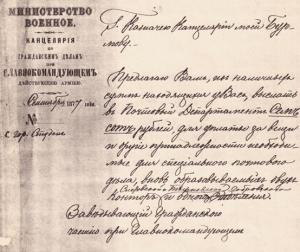 МИНИСТЕРСТВО
ВОЕННОЕ.
КАНЦЕЛЯРІЯ
ПО
ГРАЖДАНСКИМЪ ДѢЛАМЪ
ПРИ
ГЛАВНОКОМАНДУЮЩЕМЪ
ДѢЙСТВУЮЩЕЙ АРМІЕЮ.
Сентября 1877 года.
№
Г. Казначею Канцеляріи моей
Предлагаю Вамъ, изъ наличныхъ
суммъ находящихся у Васъ, выслать
въ Почтовый Департаментъ
сотъ рублей, для уплаты за вещи
и другія принадлежности необходи-
мыя для спеціальнаго почтоваго
дѣла, вновь образовывающихся двухъ
Конторъ и одного Отдѣленія
Завѣдывающій Гражданскою
частью при Главнокомандующемъ